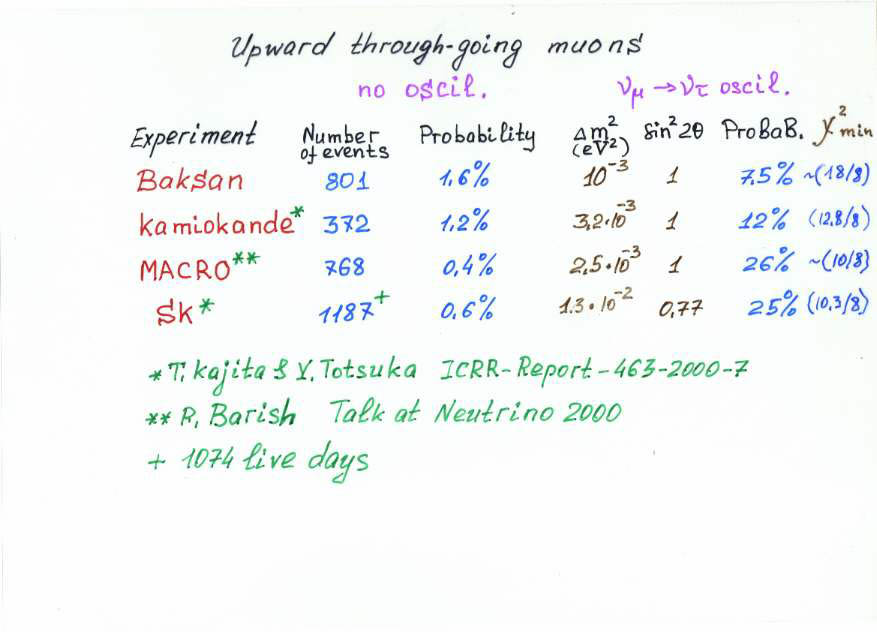 Upward through-going muons
no oscil. νμ → ντ oscil.
Experiment Number of events Probability Δm² (eV²) sin²2θ ProBaB. χ²min
Baksan 801 1,6% 10⁻³ 1 7.5% ~(18/8)
kamiokande* 372 1,2% 3,2·10⁻³ 1 12% (12,8/8)
MACRO** 768 0,4% 2,5·10⁻³ 1 26% ~(10/8)
SK* 1187⁺ 0,6% 1.3·10⁻² 0,77 25% (10,3/8)
* T. Kajita & Y. Totsuka ICRR-Report-463-2000-7
** R, Barish Talk at Neutrino 2000
+ 1074 live days